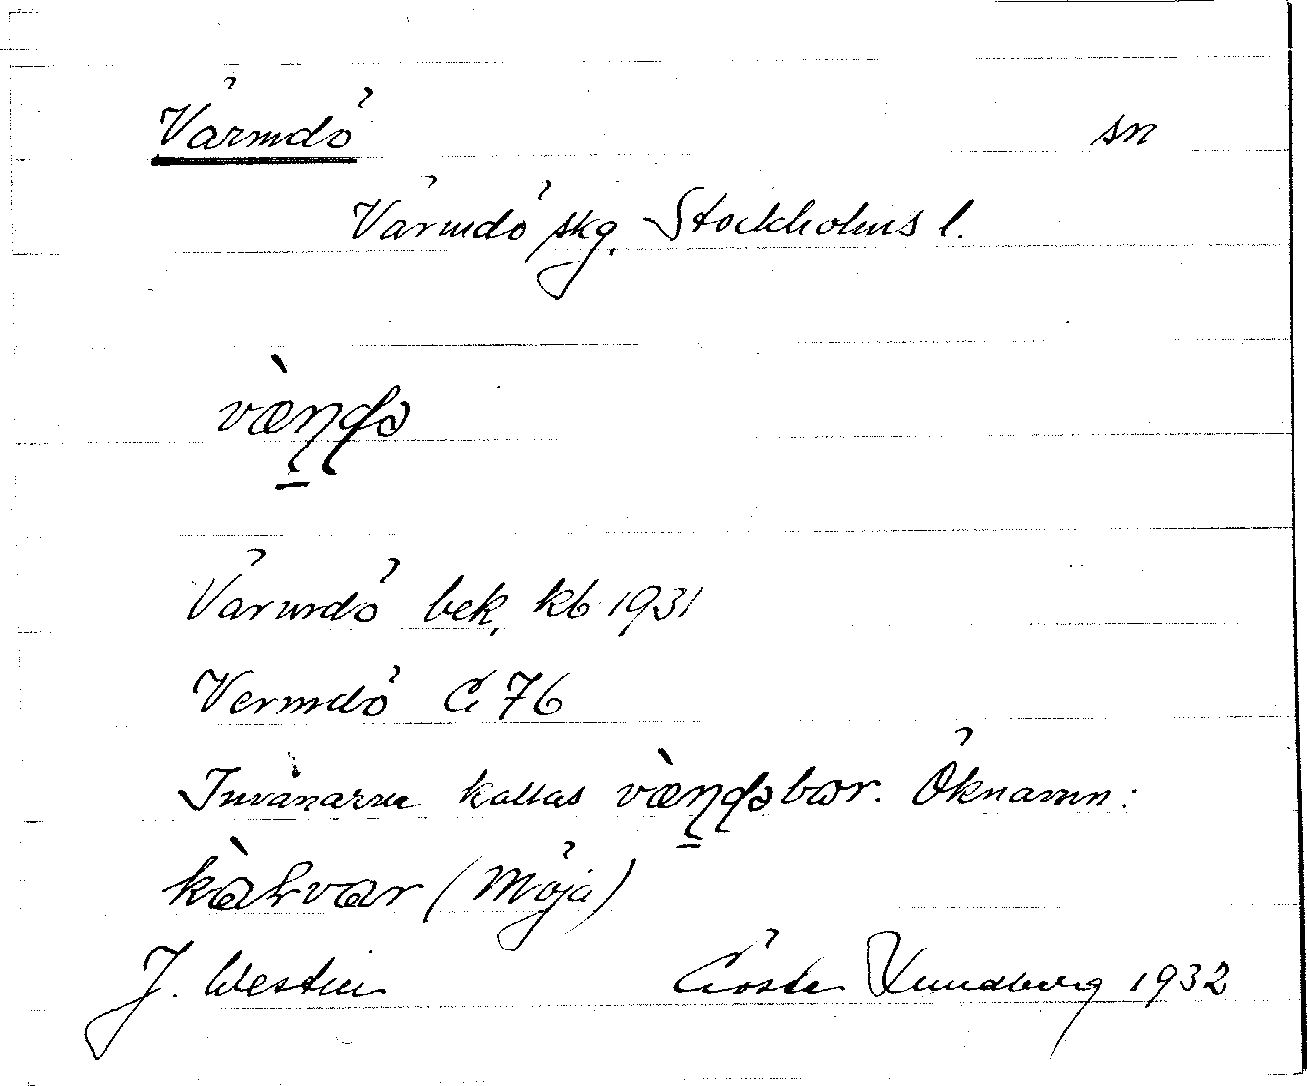 Värmdö sn
Värmdö skg. Stockholms l.
væ̀ɳɖə
Värmdö bek. kb 1931
Vermdö G 76
Invånarna kallas væ̀ɳɖəbor. Öknamn:
kàɽvar (Möja)
J. Westin Gösta Lundberg 1932